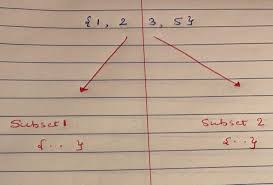 {1, 2 3, 5}
Subset 1 Subset 2
{ . . } { . . }